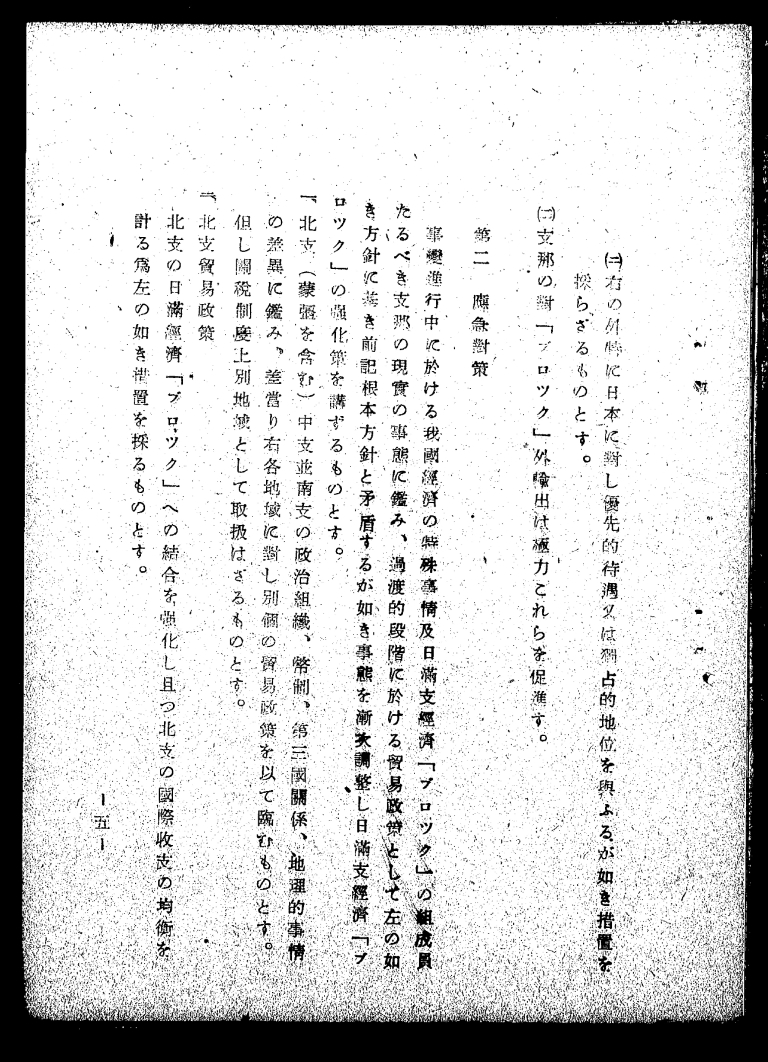 ㈡右の外特に日本に對し優先的待遇又は獨占的地位を與ふるが如き措置を
採らざるものとす。
㈡支那の對「ブロツク」外輸出は極力これらを促進す。
第二 應急對策
事變進行中に於ける我國經濟の特殊事情及日滿支經濟「ブロツク」の組成員
たるべき支那の現實の事態に鑑み、過渡的段階に於ける貿易政策として左の如
き方針に基き前記根本方針と矛盾するが如き事態を漸次調整し日滿支經濟「ブ
ロツク」の強化策を講ずるものとす。
一、北支(蒙疆を含む)中支並南支の政治組織、幣制、第三國關係、地理的事情
の差異に鑑み、差當り右各地域に對し別個の貿易政策を以て臨むものとす。
但し關稅制度上別地域として取扱はざるものとす。
二、北支貿易政策
北支の日滿經濟「ブロツク」への結合を強化し且つ北支の國際收支の均衡を
計る爲左の如き措置を採るものとす。
-五-